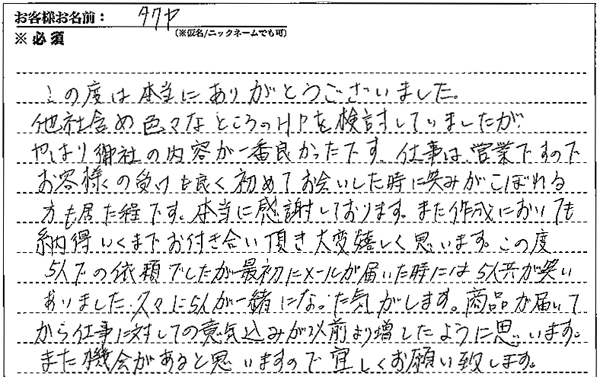 お客様お名前： タクヤ
(※仮名/ニックネームでも可)
※必須
この度は本当にありがとうございました。
他社含め色々なところのHPを検討していましたが
やはり御社の内容が一番良かったです。仕事は営業ですので
お客様の受けも良く初めてお会いした時に笑みがこぼれる
方も居た程です。本当に感謝しております。また作成においても
納得いくまでお付き合い頂き大変嬉しく思います。この度
5人での依頼でしたが最初にメールが届いた時には5人共が笑い
ありました。久々に5人が一緒になった気がします。商品が届いて
から仕事に対しての意気込みが以前より増したように思います。
また機会があると思いますので宜しくお願い致します。